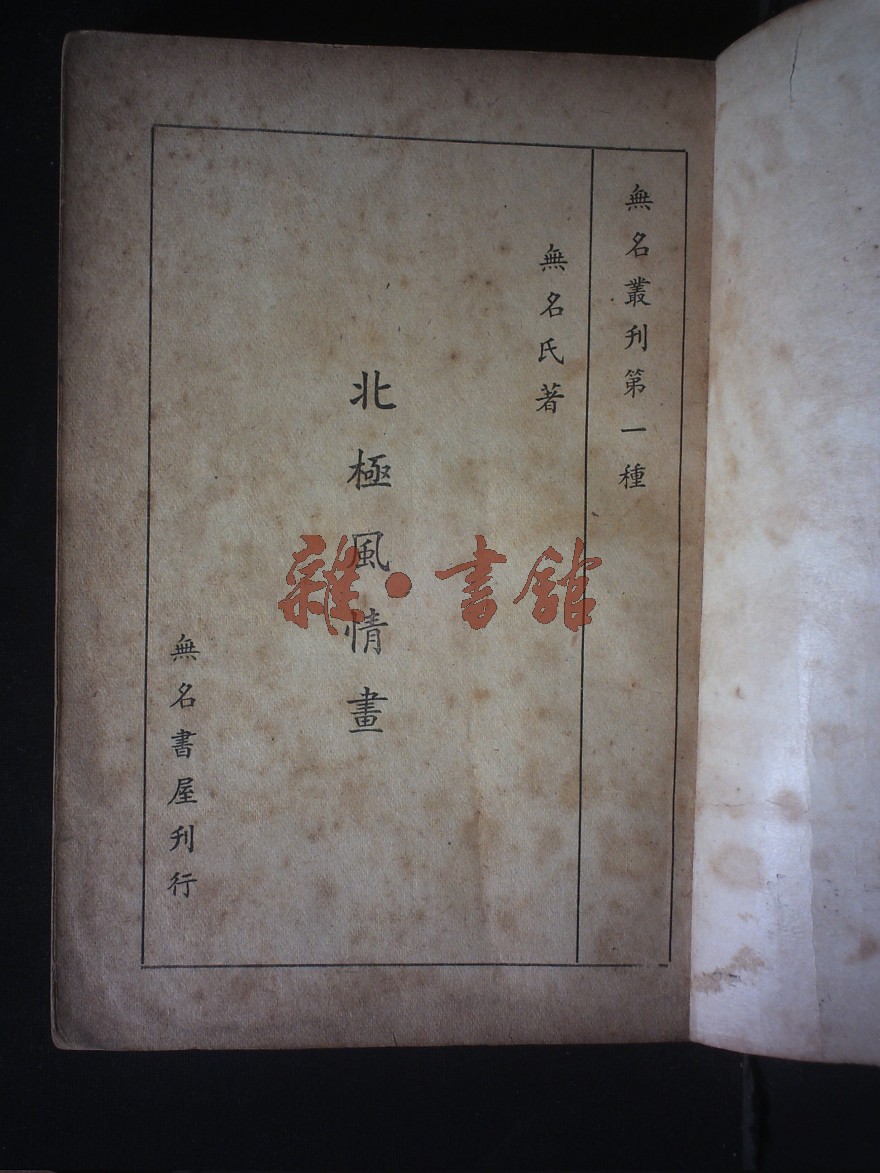 無名叢刊第一種
無名氏著
北極風情畫
無名書屋刋行
雜·書館